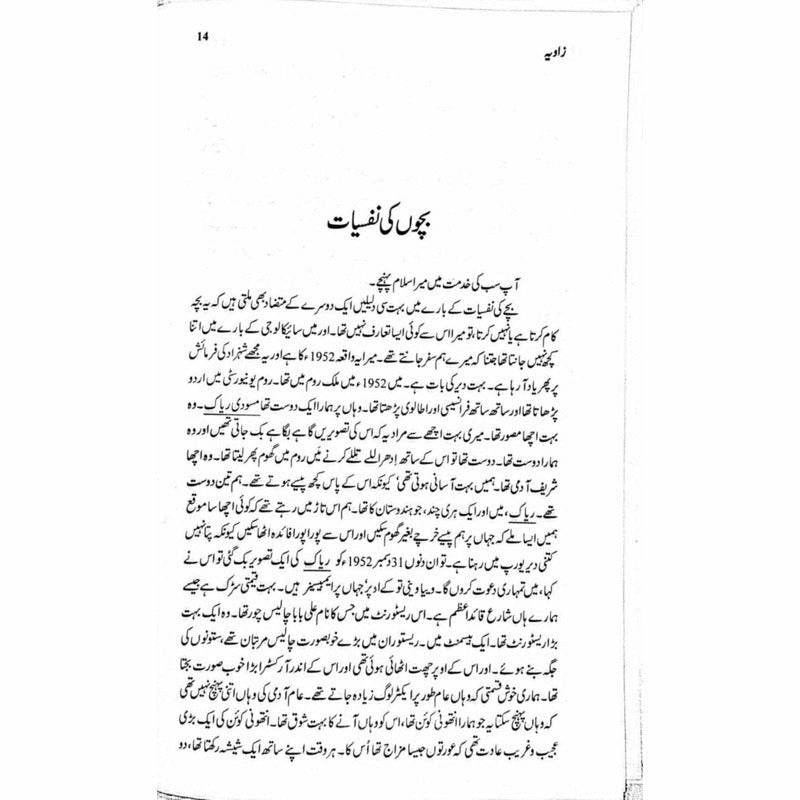 14
زاویہ
بچوں کی نفسیات
آپ سب کی خدمت میں میرا سلام پہنچے۔
بچے کی نفسیات کے بارے میں بہت سی دلیلیں ایک دوسرے کے متضاد بھی ملتی ہیں کہ یہ بچہ
کام کرتا ہے یا نہیں کرتا، تو میرا اس سے کوئی ایسا تعارف نہیں تھا۔ اور میں سائیکالوجی کے بارے میں اتنا
کچھ نہیں جانتا تھا جتنا کہ میرے ہم سفر جانتے تھے۔ میرا یہ واقعہ 1952ء کا ہے اور یہ مجھے شہزاد کی فرمائش
پر پھر یاد آ رہا ہے۔ بہت دیر کی بات ہے۔ میں 1952ء میں ملک روم میں تھا۔ روم یونیورسٹی میں اردو
پڑھاتا تھا اور ساتھ ساتھ فرانسیسی اور اطالوی پڑھتا تھا۔ وہاں پر ہمارا ایک دوست تھا مسودی ریاک۔ وہ
بہت اچھا مصور تھا۔ میری بہت اچھے سے مراد یہ کہ اس کی تصویریں گاہے بگاہے بک جاتی تھیں اور وہ
ہمارا دوست تھا۔ دوست تھا تو اس کے ساتھ ادھر اللے تللے کرنے میں روم میں گھوم پھر لیتا تھا۔ وہ اچھا
شریف آدمی تھا۔ ہمیں بہت آسانی ہوتی تھی کیونکہ اس کے پاس کچھ پیسے ہوتے تھے۔ ہم تین دوست
تھے۔ ریاک، میں اور ایک ہری چند، جو ہندوستان کا تھا۔ ہم اس تاڑ میں رہتے تھے کہ کوئی اچھا سا موقع
ہمیں ایسا ملے کہ جہاں پر ہم پیسے خرچے بغیر گھوم سکیں اور اس سے پورا پورا فائدہ اٹھا سکیں کیونکہ پتا نہیں
کتنی دیر یورپ میں رہنا ہے۔ تو ان دنوں 31 دسمبر 1952ء کو ریاک کی ایک تصویر بک گئی تو اس نے
کہا، میں تمہاری دعوت کروں گا۔ ویا وینی تو کے اوپر جہاں پر ایمبیسیز ہیں۔ بہت قیمتی سڑک ہے جیسے
ہمارے ہاں شارع قائداعظم ہے۔ اس ریسٹورنٹ میں جس کا نام علی بابا چالیس چور تھا۔ وہ ایک بہت
بڑا ریسٹورنٹ تھا۔ ایک بیسمنٹ میں۔ ریستوران میں بڑے خوبصورت چالیس مرتبان تھے، ستونوں کی
جگہ بنے ہوئے۔ اور اس کے اوپر چھت اٹھائی ہوئی تھی اور اس کے اندر آرکسٹرا بڑا خوب صورت بجتا
تھا۔ ہماری خوش قسمتی کہ وہاں عام طور پر ایکٹر لوگ زیادہ جاتے تھے۔ عام آدمی کی وہاں اتنی پہنچ نہیں تھی
کہ وہاں پہنچ سکتا یہ جو ہمارا انتھونی کوئن تھا، اس کو وہاں آنے کا بہت شوق تھا۔ انتھونی کوئن کی ایک بڑی
عجیب و غریب عادت تھی کہ عورتوں جیسا مزاج تھا اُس کا۔ ہر وقت اپنے ساتھ ایک شیشہ رکھتا تھا، دو